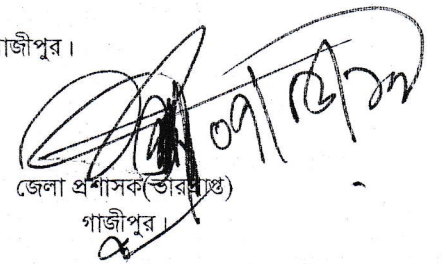 াজীপুর।
জেলা প্রশাসক(ভারপ্রাপ্ত)
গাজীপুর।